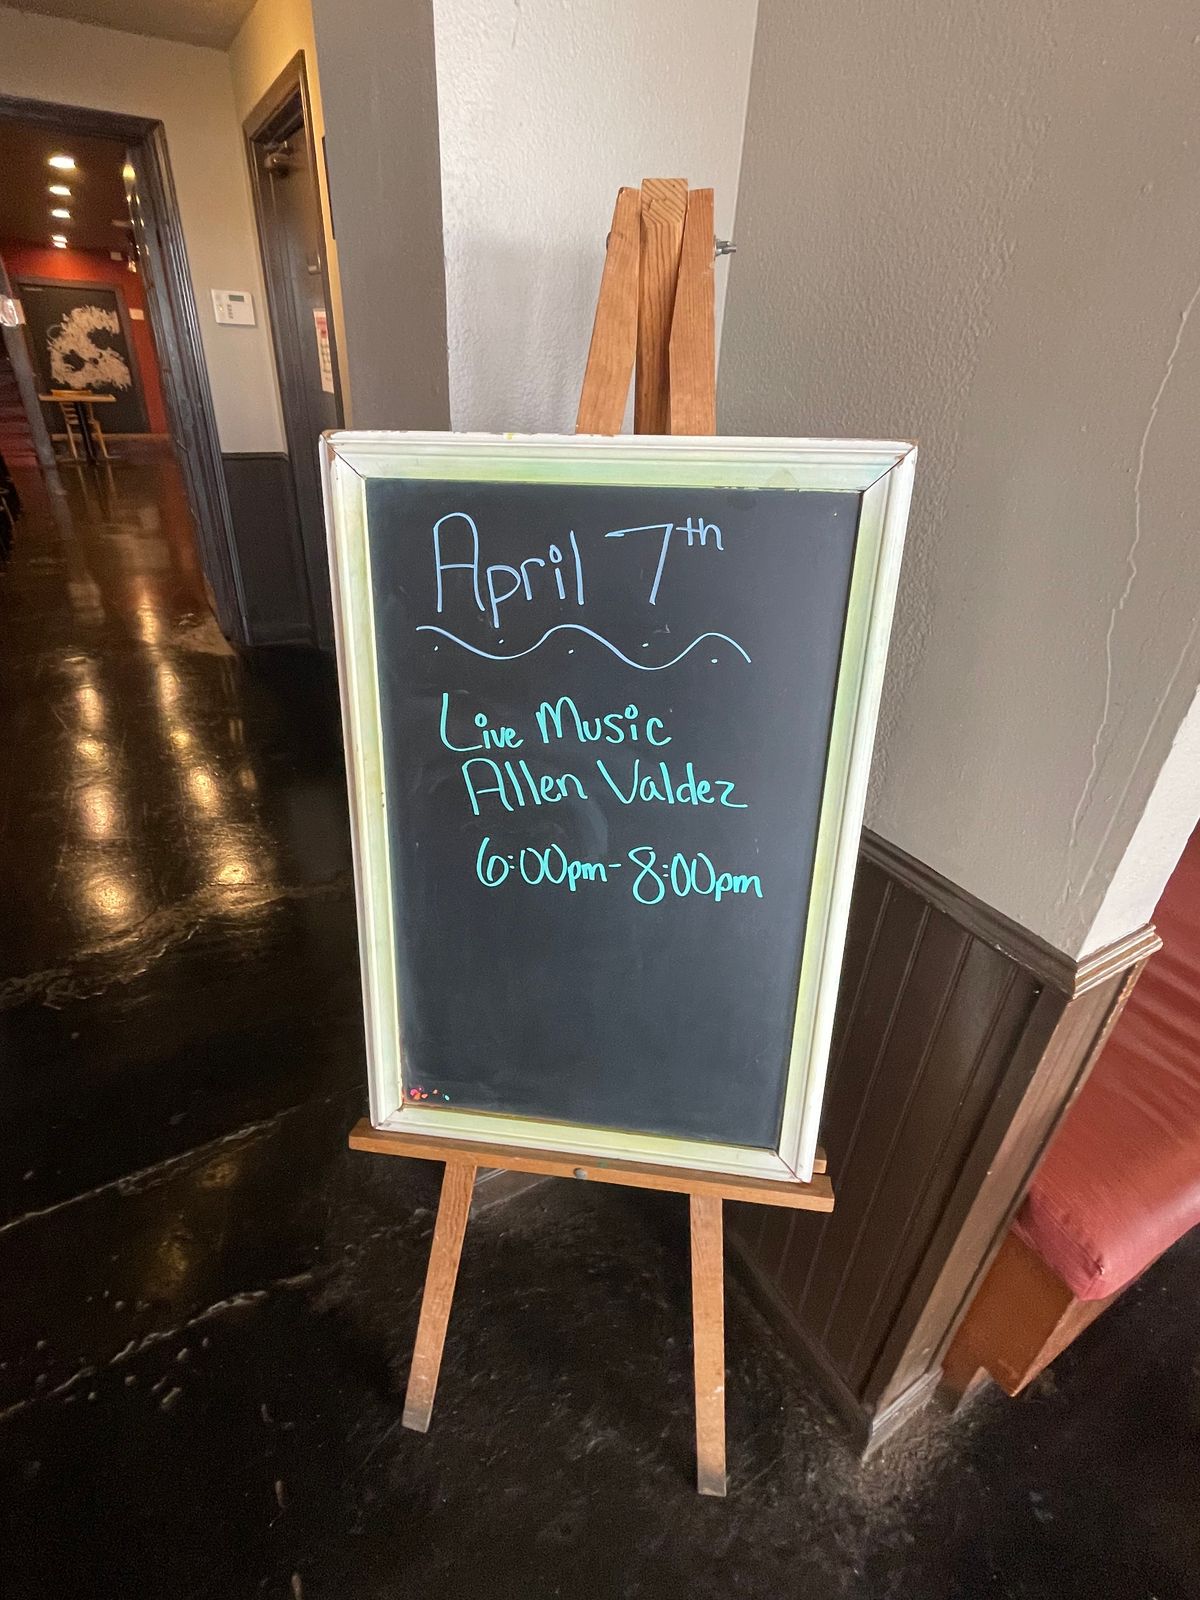 April 7th
Live Music
Allen Valdez
6:00pm-8:00pm